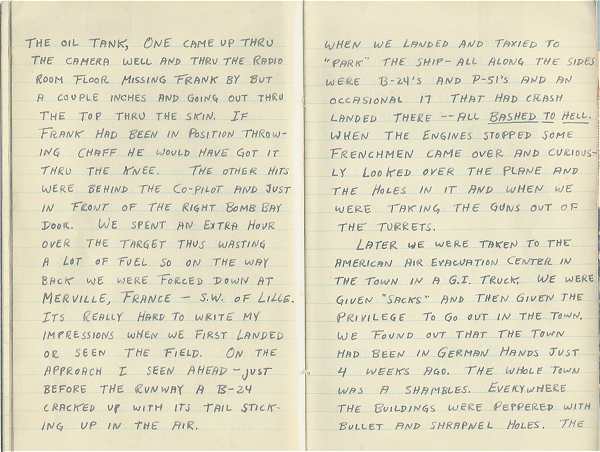 THE OIL TANK, ONE CAME UP THRU
THE CAMERA WELL AND THRU THE RADIO
ROOM FLOOR MISSING FRANK BY BUT
A COUPLE INCHES AND GOING OUT THRU
THE TOP THRU THE SKIN. IF
FRANK HAD BEEN IN POSITION THROW-
ING CHAFF HE WOULD HAVE GOT IT
THRU THE KNEE. THE OTHER HITS
WERE BEHIND THE CO-PILOT AND JUST
IN FRONT OF THE RIGHT BOMB BAY
DOOR. WE SPENT AN EXTRA HOUR
OVER THE TARGET THUS WASTING
A LOT OF FUEL SO ON THE WAY
BACK WE WERE FORCED DOWN AT
MERVILLE, FRANCE – S.W. OF LILLE.
ITS REALLY HARD TO WRITE MY
IMPRESSIONS WHEN WE FIRST LANDED
OR SEEN THE FIELD. ON THE
APPROACH I SEEN AHEAD – JUST
BEFORE THE RUNWAY A B-24
CRACKED UP WITH ITS TAIL STICK-
ING UP IN THE AIR.
WHEN WE LANDED AND TAXIED TO
"PARK" THE SHIP – ALL ALONG THE SIDES
WERE B-24'S AND P-51'S AND AN
OCCASIONAL 17 THAT HAD CRASH
LANDED THERE -- ALL BASHED TO HELL.
WHEN THE ENGINES STOPPED SOME
FRENCHMEN CAME OVER AND CURIOUS-
LY LOOKED OVER THE PLANE AND
THE HOLES IN IT AND WHEN WE
WERE TAKING THE GUNS OUT OF
THE TURRETS.
LATER WE WERE TAKEN TO THE
AMERICAN AIR EVACUATION CENTER IN
THE TOWN IN A G.I. TRUCK. WE WERE
GIVEN "SACKS" AND THEN GIVEN THE
PRIVILEGE TO GO OUT IN THE TOWN.
WE FOUND OUT THAT THE TOWN
HAD BEEN IN GERMAN HANDS JUST
4 WEEKS AGO. THE WHOLE TOWN
WAS A SHAMBLES. EVERYWHERE
THE BUILDINGS WERE PEPPERED WITH
BULLET AND SHRAPNEL HOLES. THE